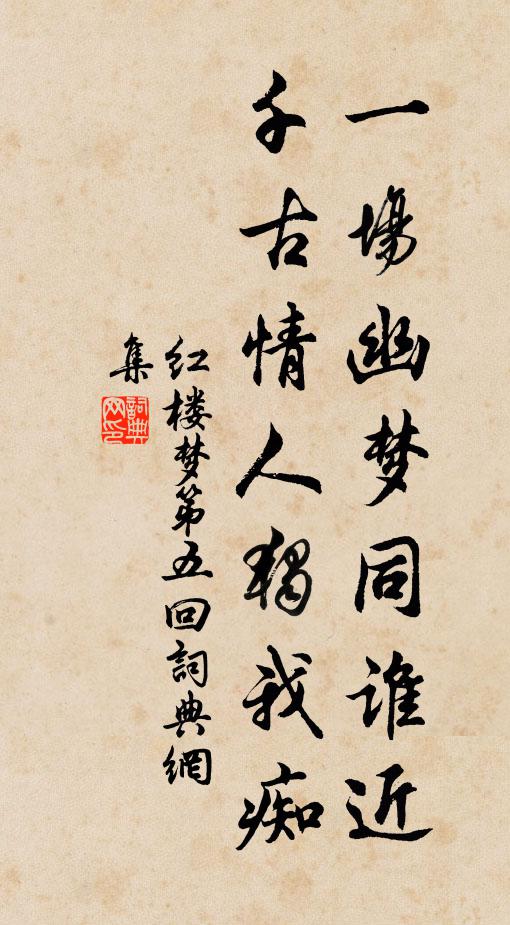 一場幽梦同谁近
千古情人獨我痴
红楼梦第五回詞典網
集
詞典网印